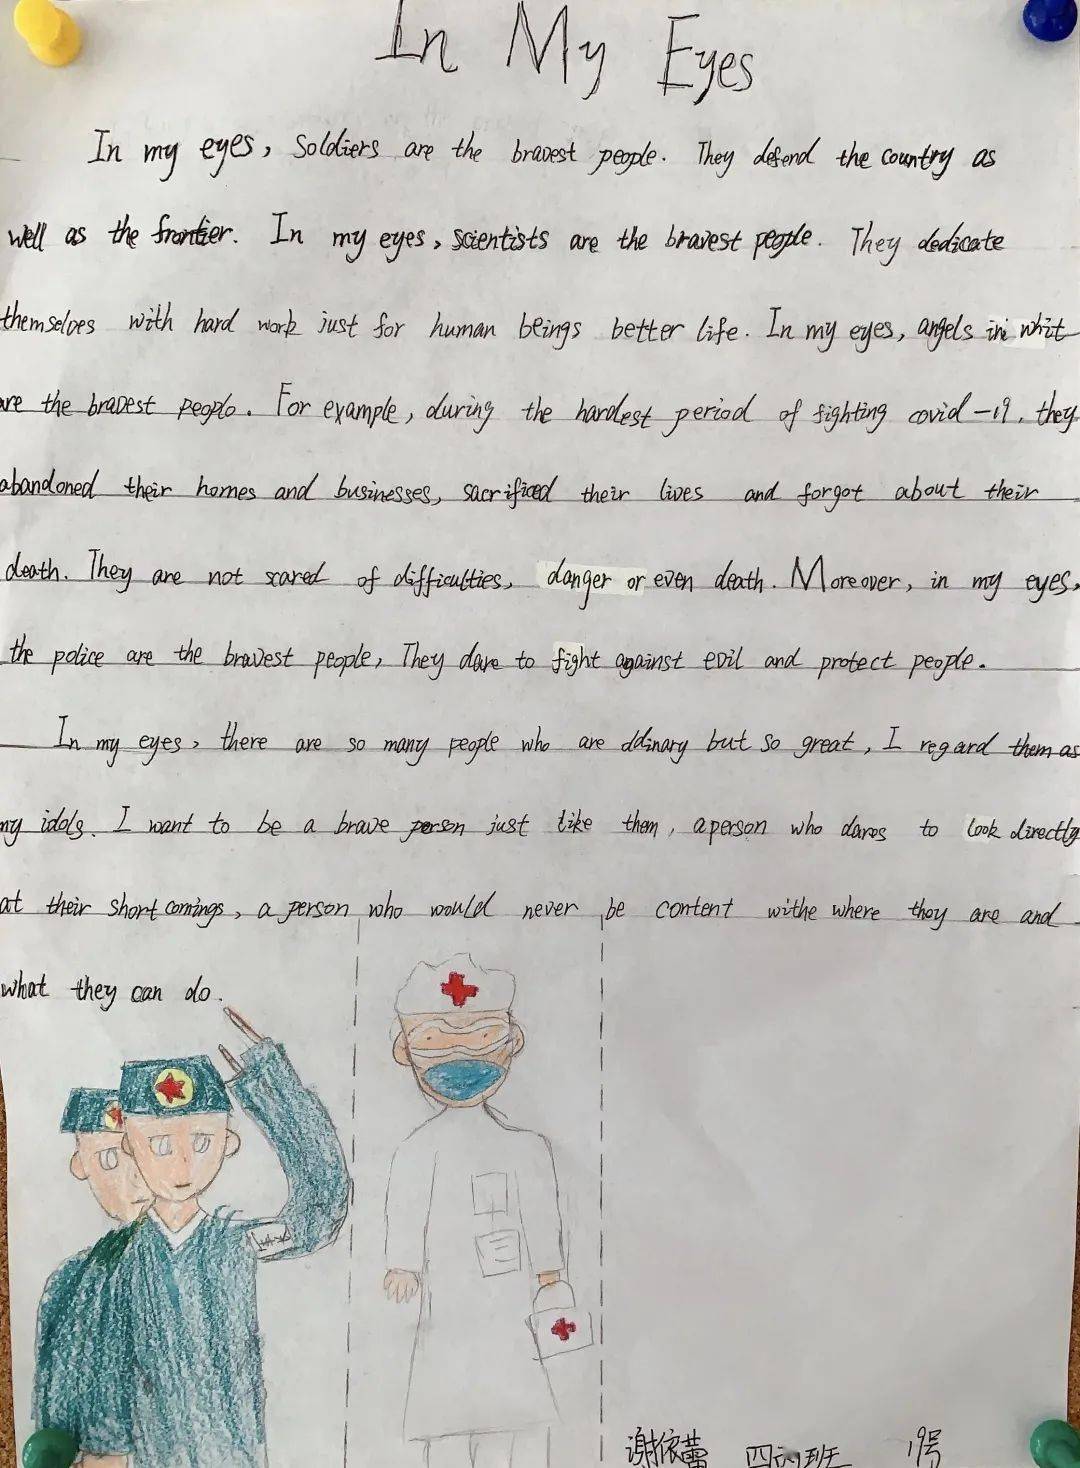 In My Eyes
In my eyes, soldiers are the bravest people. They defend the country as
well as the frontier. In my eyes, scientists are the bravest people. They dedicate
themselves with hard work just for human beings better life. In my eyes, angels in whit
are the bravest people. For example, during the hardest period of fighting covid-19, they
abandoned their homes and businesses, sacrificed their lives and forgot about their
death. They are not scared of difficulties, danger or even death. Moreover, in my eyes,
the police are the bravest people, They dare to fight against evil and protect people.
In my eyes, there are so many people who are ddinary but so great, I regard them as
my idols. I want to be a brave person just like them, a person who dares to look directly
at their short comings, a person who would never be content withe where they are and
what they can do.
谢依蕾 四 班 19号